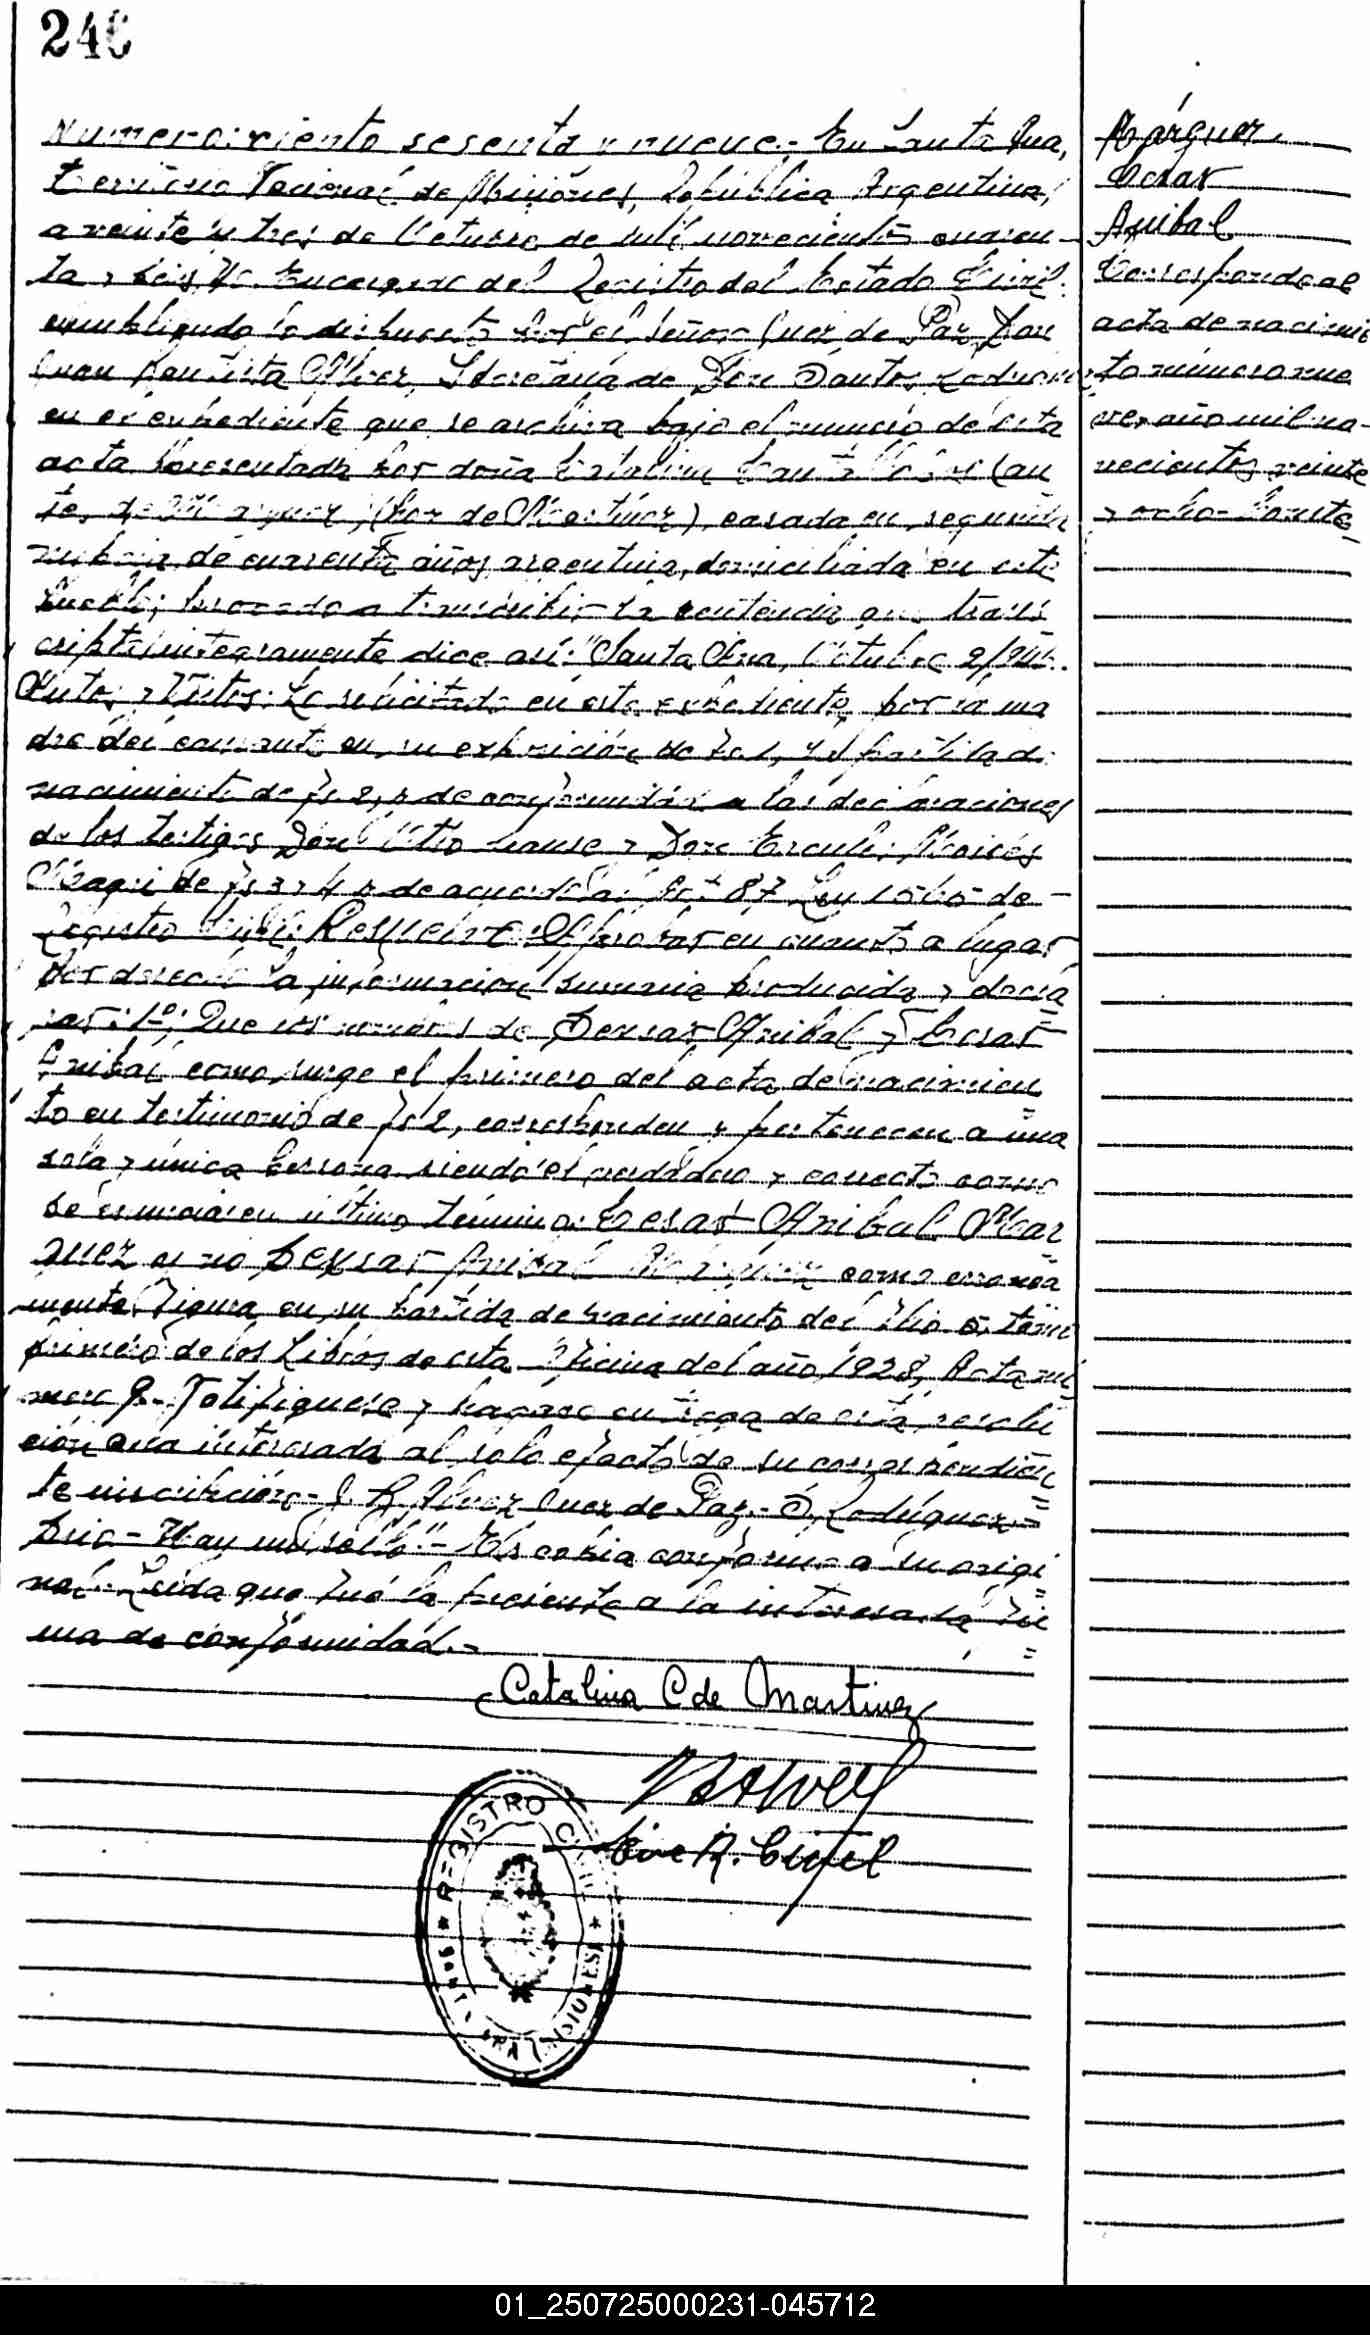 246
Numero: ciento sesenta y nueve.- En Santa Ana,
Territorio Nacional de Misiones, República Argentina,
a veinte y tres de Octubre de mil novecientos cuaren-
ta y seis, Yo Encargado del Registro del Estado Civil
cumpliendo lo dispuesto por el Señor Juez de Paz, Don
Juan Bautista Alvez, Secretaría de Don Santos Rodriguez
en el expediente que se archiva bajo el numero de esta
acta presentada por doña Catalina (an
tes de Marquez) (hoy de Martinez), casada en segunda
de cuarenta años, argentina, domiciliada en este
Pueblo; procedo a transcribir la sentencia que trans
cripta integramente dice así: "Santa Ana, Octubre 2/946.
Autos y Vistos: Lo solicitado en este expediente, por la ma
dre del causante en su exposición de fs. 1, y el partida de
nacimiento de fs 2, y de conformidad a las declaraciones
de los testigos Don Otto y Don Moisés
de fs 3 y 4 y de acuerdo al Art 87 Ley 1565 de -
Registro Civil: Resuelvo: Aprobar en cuanto a lugar
por derecho la información sumaria producida y decla
rar: 1º: Que los nombres de Sexsar Anibal y Cesar
Anibal como surge el primero del acta de nacimien
to en testimonio de fs 2, corresponden y pertenecen a una
sola y única persona siendo el verdadero y correcto como
se enuncia en último término: Cesar Anibal Mar
quez y no Sexsar Anibal Marquez como erronea
mente figura en su partida de nacimiento del folio tomo
primero de los Libros de esta Oficina del año 1928, Acta nú
mero 9.- Notifiquese y hagase entrega de esta resolu
ción a la interesada al solo efecto de su correspondien
te inscripción.- J. B. Alvez Juez de Paz.- S. Rodriguez
Srio - Hay un sello".- Es copia conforme a su origi
nal. Leida que fué la presente a la interesada fir
ma de conformidad.-
Catalina C de Martinez
REGISTRO CIVIL
SANTA ANA (MISIONES)
Márquez
Cesar
Anibal
Corresponde al
acta de nacimien
to número nue
ve, año mil no-
vecientos veinte
y ocho-
01_250725000231-045712